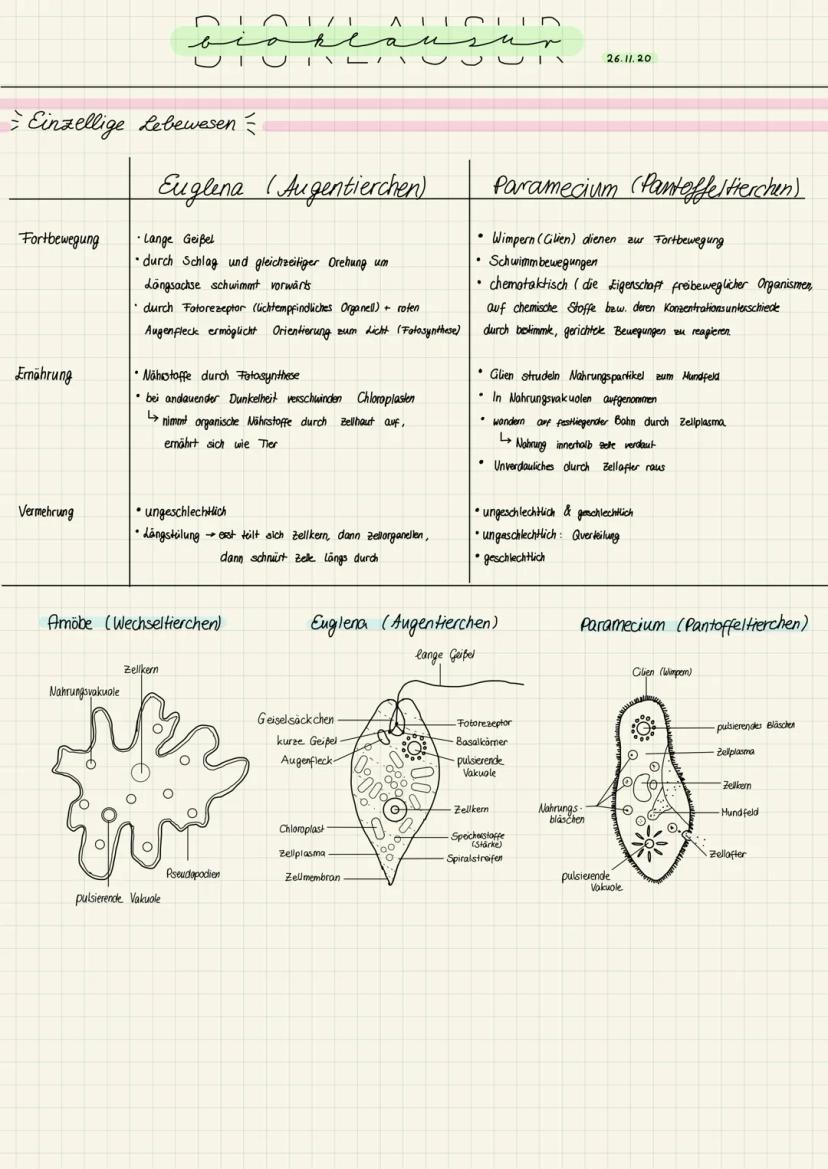 BIOKLAUSUR
bioklausur
26.11.20
Einzellige Lebewesen
Euglena (Augentierchen)
Paramecium (Pantoffeltierchen)
Fortbewegung
• Lange Geißel
• durch Schlag und gleichzeitiger Drehung um
Längsachse schwimmt vorwärts
• durch Fotorezeptor (lichtempfindliches Organell) + roten
Augenfleck ermöglicht Orientierung zum Licht (Fotosynthese)
• Wimpern (Cilien) dienen zur Fortbewegung
• Schwimmbewegungen
• chemotaktisch (die Eigenschaft freibeweglicher Organismen,
auf chemische Stoffe bzw. deren Konzentrationsunterschiede
durch bestimmte, gerichtete Bewegungen zu reagieren.
Ernährung
• Nährstoffe durch Fotosynthese
• bei andauender Dunkelheit verschwinden Chloroplasten
↳ nimmt organische Nährstoffe durch Zellhaut auf,
ernährt sich wie Tier
• Cilien strudeln Nahrungspartikel zum Mundfeld
• In Nahrungsvakuolen aufgenommen
• wandern auf festliegender Bahn durch Zellplasma
↳ Nahrung innerhalb Zelle verdaut
• Unverdauliches durch Zellafter raus
Vermehrung
• ungeschlechtlich
• Längsteilung → erst teilt sich Zellkern, dann Zellorganellen,
dann schnürt Zelle längs durch
• ungeschlechtlich & geschlechtlich
• ungeschlechtlich: Querteilung
• geschlechtlich
Amöbe (Wechseltierchen)
Zellkern
Nahrungsvakuole
Pseudopodien
pulsierende Vakuole
Euglena (Augentierchen)
lange Geißel
Geiselsäckchen
kurze Geißel
Augenfleck
Chloroplast
Zellplasma
Zellmembran
Fotorezeptor
Basalkörner
pulsierende
Vakuole
Zellkern
Speicherstoffe
(Stärke)
Spiralstreifen
Paramecium (Pantoffeltierchen)
Cilien (Wimpern)
pulsierendes Bläschen
Zellplasma
Zellkern
Mundfeld
Zellafter
Nahrungs-
bläschen
pulsierende
Vakuole